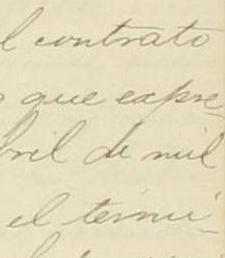 l contrato
que expre-
bril de mil
el termi-